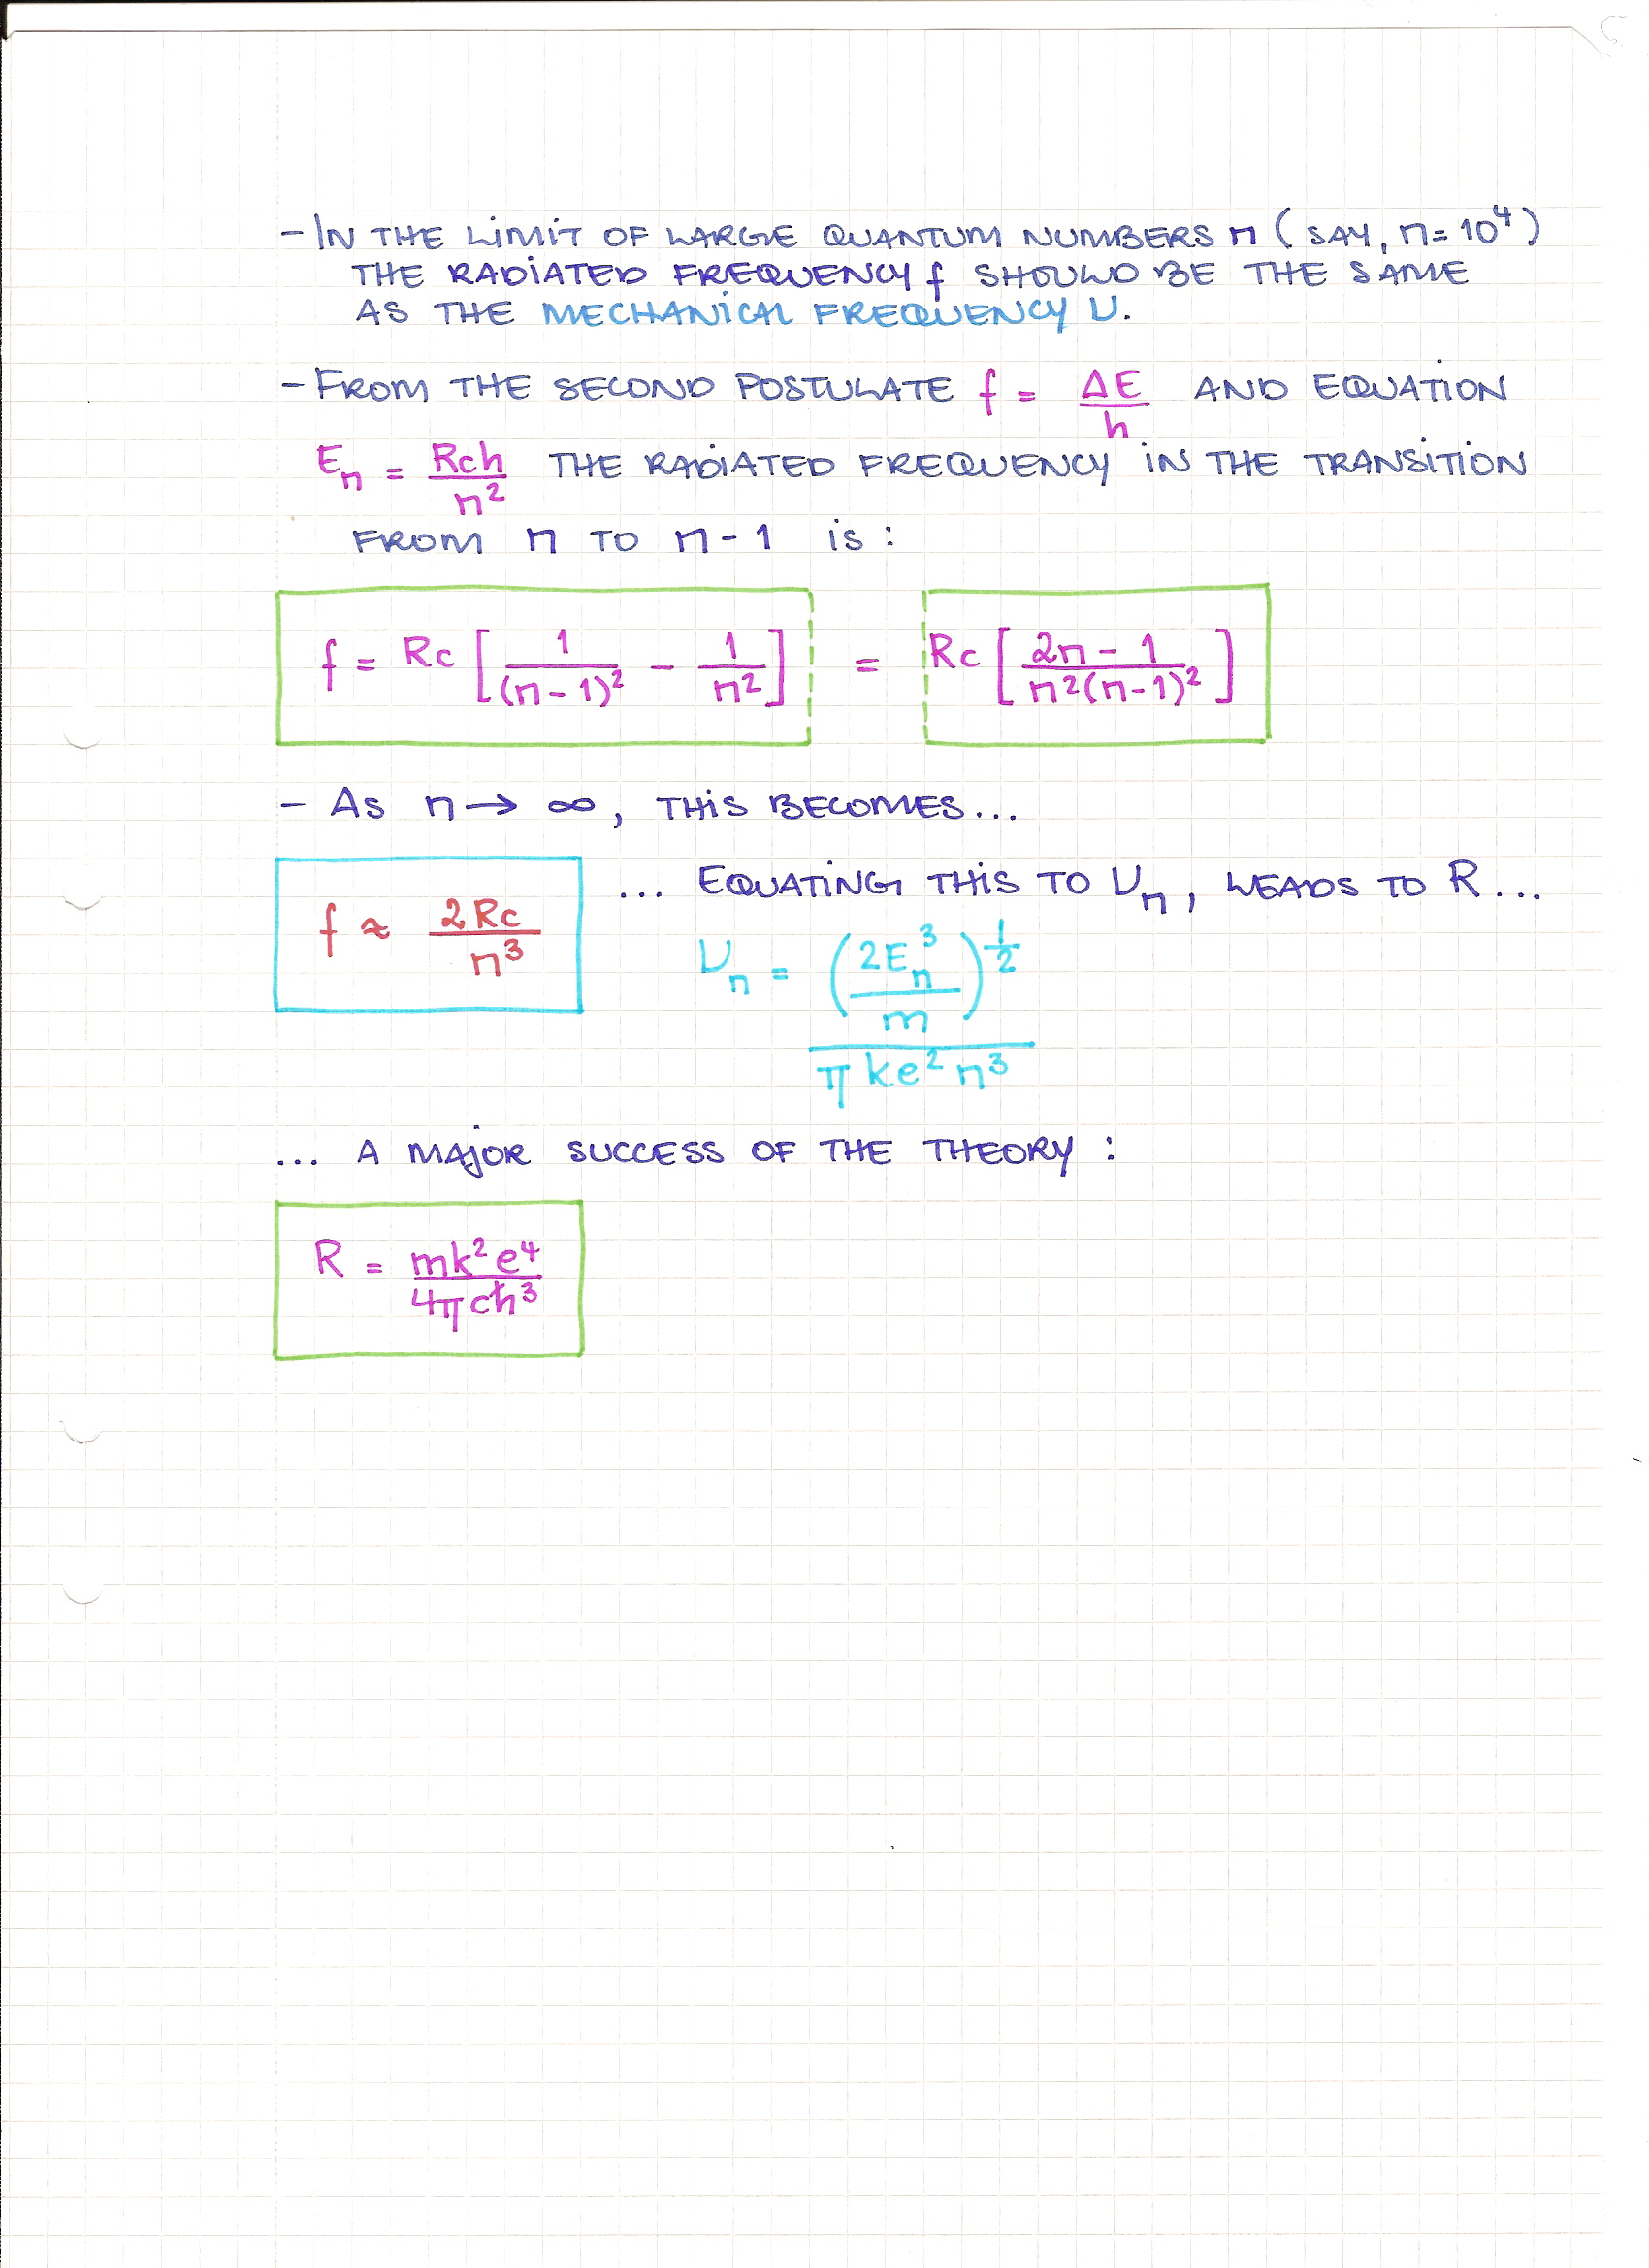 - IN THE LIMIT OF LARGE QUANTUM NUMBERS n (SAY, n = 10⁴)
THE RADIATED FREQUENCY f SHOULD BE THE SAME
AS THE MECHANICAL FREQUENCY ν.
- FROM THE SECOND POSTULATE f = ΔE/h AND EQUATION
Eₙ = Rch/n² THE RADIATED FREQUENCY IN THE TRANSITION
FROM n TO n - 1 is :
f = Rc [1/(n-1)² - 1/n²] = Rc [(2n - 1)/(n²(n-1)²)]
- AS n → ∞, THIS BECOMES...
... EQUATING THIS TO νₙ, LEADS TO R...
f ≈ 2Rc/n³
νₙ = (2Eₙ³/m)^½ / (π ke² n³)
... A MAJOR SUCCESS OF THE THEORY :
R = mk²e⁴/(4πcħ³)